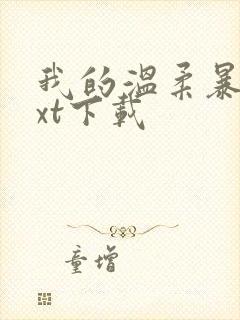 我的温柔暴
xt下载
童增